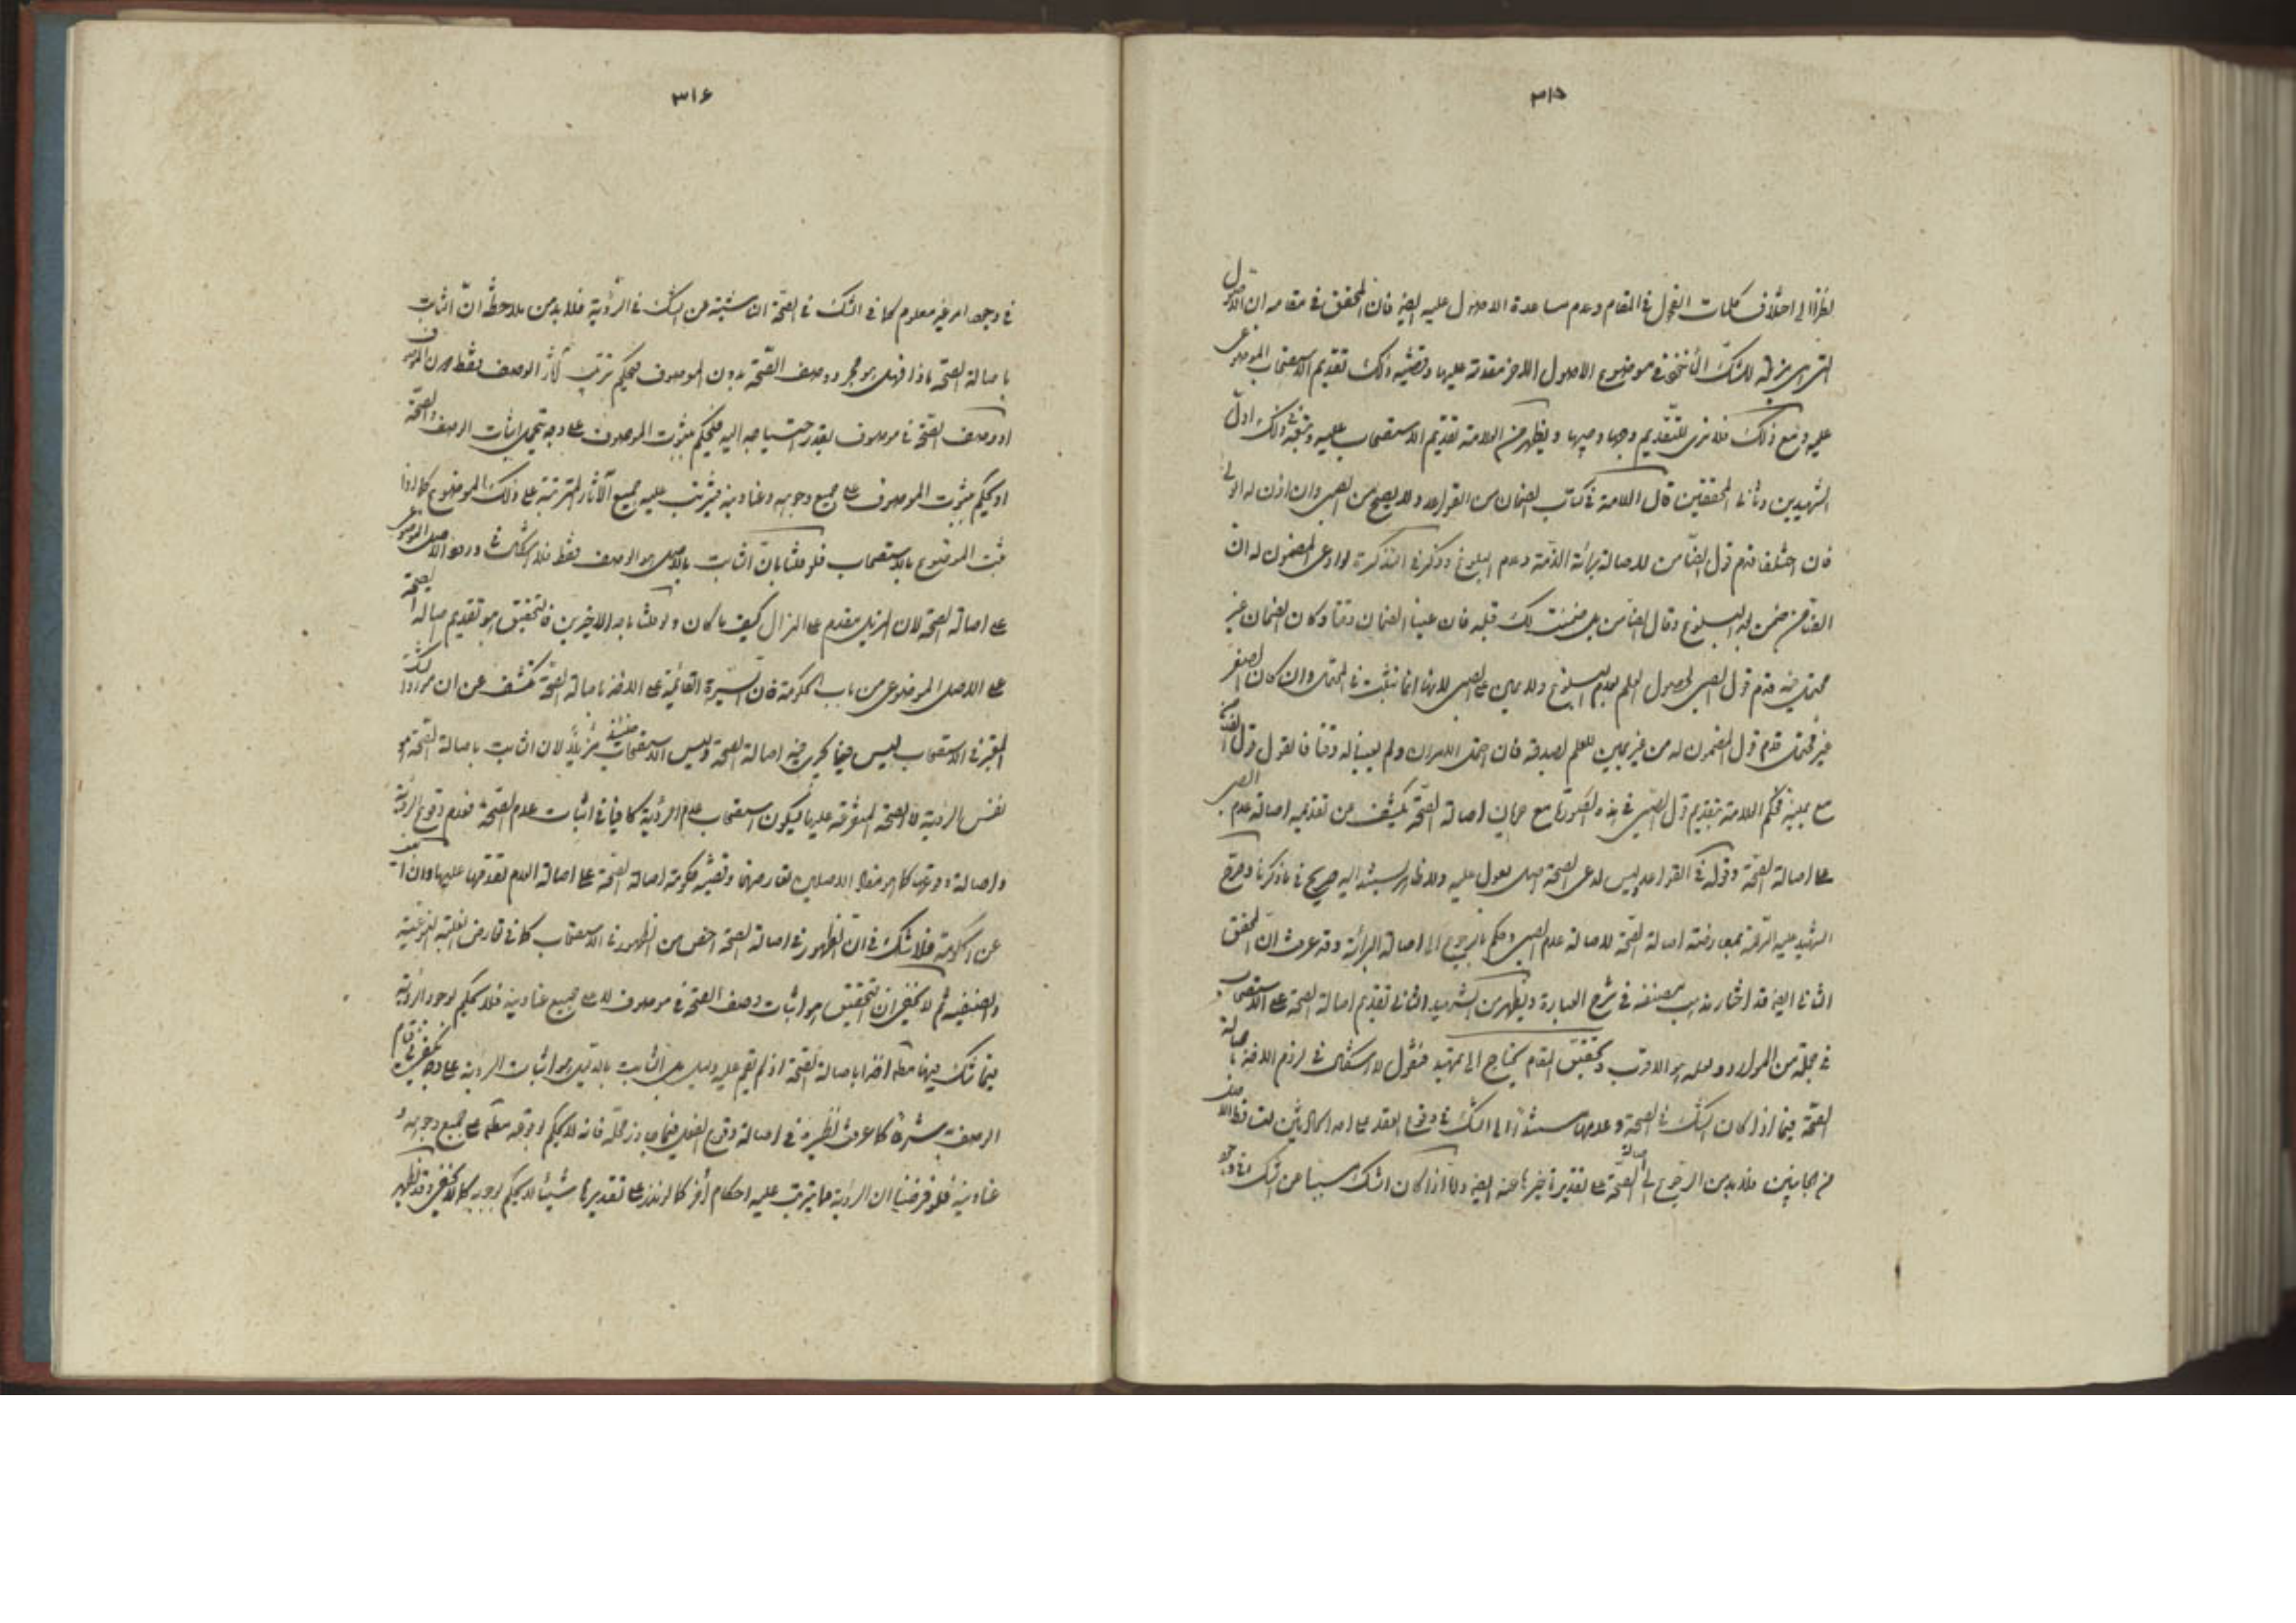 ٣١٥
نظرا الى اختلاف كلمات الفحول في المقام وعدم مساعدة الاصول عليه ايضا فان المحقق في مقامه ان الاصول
التى هى مزيلة للشك المأخوذ في موضوع الاصول الاخر مقدمة عليها وقضية ذلك تقديم الاستصحاب الموضوعى
عليه ومع ذلك فلا نرى للتقديم وجها وجيها ويظهر من العلامة تقديم الاستصحاب عليه وتبعه ذلك اول
الشهيدين وثانى المحققين قال العلامة في كتاب الضمان من القواعد ولا يصح من الصبى وان اذن له الولى
فان اختلفا قدم قول الضامن لاصالة برائة الذمة وعدم البلوغ وذكر في التذكرة لو ادعى المضمون له ان
الضامن ضمن بعد البلوغ وقال الضامن بل ضمنت لك قبله فان عينا الضمان وقتا وكان الضمان غير
محتمل فيه قدم قول الصبى لحصول العلم بعدم البلوغ ولا يمين على الصبى لانها انما تثبت في المحتمل وان كان الصغر
غير محتمل قدم قول المضمون له من غير يمين للعلم بصدقه فان احتمل الامران ولم يعينا له وقتا فالقول قول الضامن
مع يمينه فحكم العلامة بتقديم قول الصبى في هذه الصورة مع جريان اصالة الصحة يكشف عن تقديمه اصالة عدم البلوغ
على اصالة الصحة وقوله في القواعد وليس لمدعى الصحة اصل يعول عليه ولا ظاهر يستند اليه صريح في ما ذكرنا وصرح
الشهيد عليه الرحمة بمعارضته اصالة الصحة لاصالة عدم الصبى وحكم بالرجوع الى اصالة البرائة وقد عرفت ان المحقق
الثانى ايضا قد اختار مذهب المصنف في شرح العبارة ويظهر من الشهيد الثانى تقديم اصالة الصحة على الاستصحاب
في جملة من الموارد ولعله هو الاقرب وتحقيق المقام يحتاج الى تمهيد فنقول لا اشكال في لزوم الاخذ باصالة
الصحة فيما اذا كان الشك في الصحة وعدمها مستندا الى الشك في وقوع العقد على احد الحالتين لتساقط الاصلين
من الجانبين فلا بد من الرجوع الى اصالة الصحة على تقدير تأخيرها عنه ايضا واما اذا كان الشك مسببا عن الشك في وجود
٣١٦
في وجود امر غير معلوم كما في الشك في الصحة الناشئة عن الشك في الرؤية فلا بد من ملاحظة ان الثابت
باصالة الصحة ماذا فهل هو مجرد وصف الصحة بدون الموصوف فيحكم بترتيب آثار الوصف فقط دون الموصوف
او وصف الصحة في موصوف بقدر احتياجه اليه فيحكم بثبوت الموصوف على وجه يحتمل اثبات الوصف والصحة
او يحكم بثبوت الموصوف على جميع وجوهه وعناوينه فيترتب عليه جميع الآثار المترتبة على ذلك الموضوع كما اذا
ثبت الموضوع بالاستصحاب فلو قلنا بان الثابت بالاصل هو الوصف فقط فلا اشكال في ورود الاصل الموضوعى
على اصالة الصحة لان المزيل مقدم على المزال كيف ما كان ولو قلنا باحد الاخيرين فالتحقيق هو تقديم اصالة الصحة
على الاصل الموضوعى من باب الحكومة فان السيرة القائمة على الاخذ باصالة الصحة تكشف عن ان موارد الشك
المعتبر في الاستصحاب ليس فيما يجرى فيه اصالة الصحة وليس الاستصحاب حينئذ مزيلا لان الثابت باصالة الصحة هو
نفس الرؤية لا الصحة المتفرعة عليها فيكون استصحاب عدم الرؤية كافيا في اثبات عدم الصحة فعدم وقوع الرؤية
واصالة وقوعها كما هو مفاد الاصلين تعارضهما وقضية حكومة اصالة الصحة على اصالة العدم تقدمها عليها وان اغمضت
عن الحكومة فلا شك في ان الظهور في اصالة الصحة اخص من الظهور في الاستصحاب كما في تعارض الغلبة النوعية
والصنفية ثم لا يخفى ان التحقيق هو اثبات وصف الصحة في موصوف لا على جميع عناوينه فلا يحكم بوجود الرؤية
فيما شك فيها مطلقا اخذا باصالة الصحة اذ لم يقم عليه دليل بل الثابت بالدليل هو اثبات الرؤية على وجه يكفى في قيام
الوصف بشرط كما عرفت نظيره في اصالة وقوع الفعل فيما جاوز محله فانه لا يحكم بوقوعه مطلقا على جميع وجوهه و
عناوينه فلو فرضنا ان الرؤية مما يترتب عليه احكام أخر كما لو نذر على تقديرها شيئا لا يحكم بوجوبه كما لا يخفى وقد ظهر